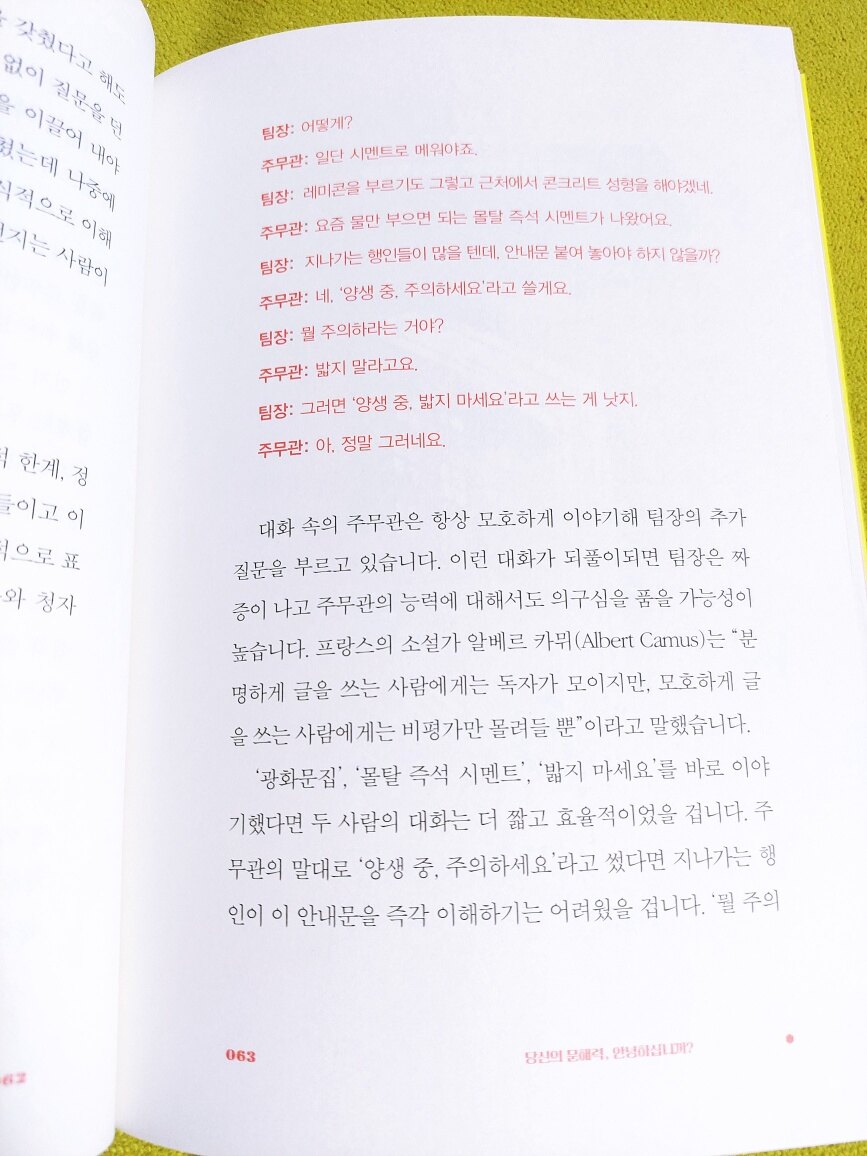 갖췄다고 해도
없이 질문을 던
을 이끌어 내야
렸는데 나중에
식적으로 이해
던지는 사람이
한계, 정
들이고 이
적으로 표
와 청자
062
팀장: 어떻게?
주무관: 일단 시멘트로 메워야죠.
팀장: 레미콘을 부르기도 그렇고 근처에서 콘크리트 성형을 해야겠네.
주무관: 요즘 물만 부으면 되는 몰탈 즉석 시멘트가 나왔어요.
팀장: 지나가는 행인들이 많을 텐데, 안내문 붙여 놓아야 하지 않을까?
주무관: 네, ‘양생 중, 주의하세요’라고 쓸게요.
팀장: 뭘 주의하라는 거야?
주무관: 밟지 말라고요.
팀장: 그러면 ‘양생 중, 밟지 마세요’라고 쓰는 게 낫지.
주무관: 아, 정말 그러네요.
대화 속의 주무관은 항상 모호하게 이야기해 팀장의 추가
질문을 부르고 있습니다. 이런 대화가 되풀이되면 팀장은 짜
증이 나고 주무관의 능력에 대해서도 의구심을 품을 가능성이
높습니다. 프랑스의 소설가 알베르 카뮈(Albert Camus)는 “분
명하게 글을 쓰는 사람에게는 독자가 모이지만, 모호하게 글
을 쓰는 사람에게는 비평가만 몰려들 뿐”이라고 말했습니다.
‘광화문집’, ‘몰탈 즉석 시멘트’, ‘밟지 마세요’를 바로 이야
기했다면 두 사람의 대화는 더 짧고 효율적이었을 겁니다. 주
무관의 말대로 ‘양생 중, 주의하세요’라고 썼다면 지나가는 행
인이 이 안내문을 즉각 이해하기는 어려웠을 겁니다. ‘뭘 주의
063
당신의 문해력, 안녕하십니까?